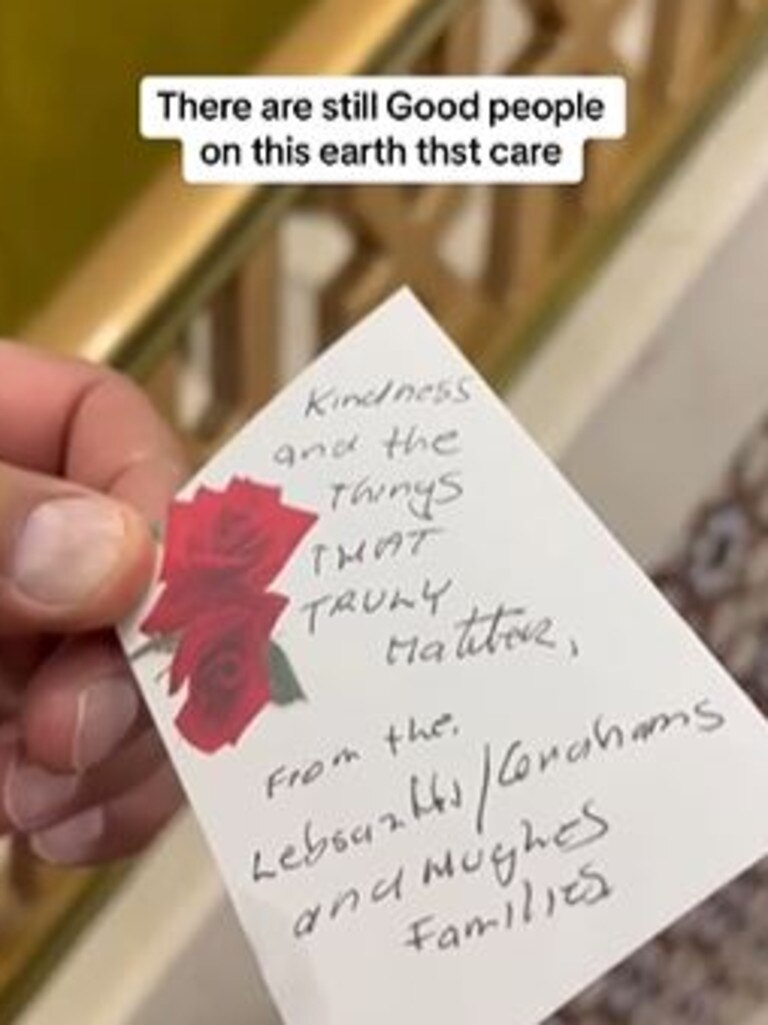 There are still Good people
on this earth thst care
Kindness
and the
Things
THAT
TRULY
Matter,
From the.
/Grahams
and Hughes
Families